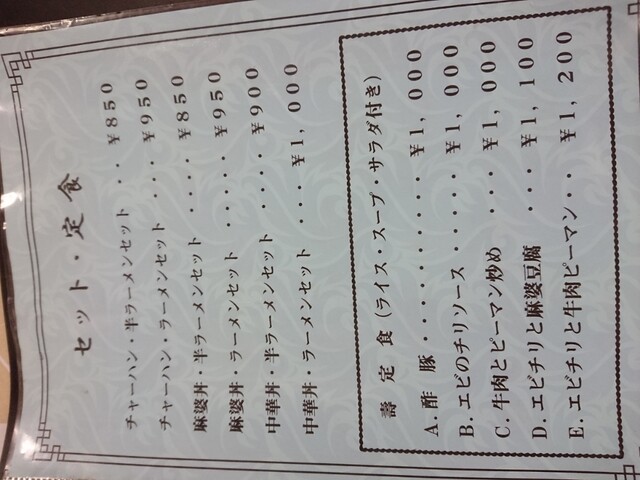 セット・定食
チャーハン・半ラーメンセット ・・ ¥850
チャーハン・ラーメンセット ・・・ ¥950
麻婆丼・半ラーメンセット ・・・・ ¥850
麻婆丼・ラーメンセット ・・・・・ ¥950
中華丼・半ラーメンセット ・・・・ ¥900
中華丼・ラーメンセット ・・・ ¥1,000
壽 定 食(ライス・スープ・サラダ付き)
A.酢 豚・・・・・・・・・・・¥1,000
B.エビのチリソース ・・・・・ ¥1,000
C.牛肉とピーマン炒め ・・・ ¥1,000
D.エビチリと麻婆豆腐 ・・・ ¥1,100
E.エビチリと牛肉ピーマン・・ ¥1,200